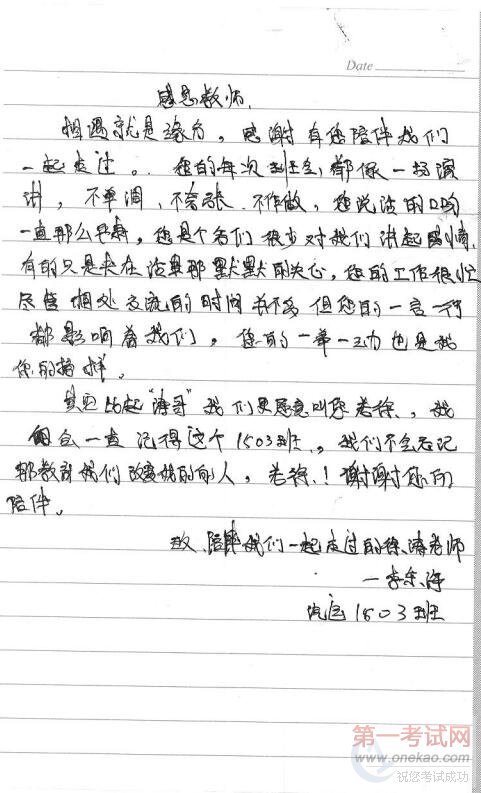 Date
感恩教师.
相遇就是缘分，感谢有您陪伴我们
一起走过。您的每次班会，都像一场演
讲，不单调，不夸张，不做作，您说话的口吻
一直那么平静，您是个名们很少对我们讲起感情，
有的只是夹在话里那默默的关心，您的工作很忙
尽管相处交流的时间并不多但您的一言一行
都影响着我们，您的一举一动也是我
们的榜样。
其实比起“涛哥”我们更愿意叫您老徐，我
们会一直记得这个1503班，我们不会忘记
那教育我们改变我们的人，老徐！谢谢您的
陪伴。
致陪伴我们一起走过的徐涛老师
一李东海
汽运1503班
第一考试网
www.onekao.com
祝您考试成功